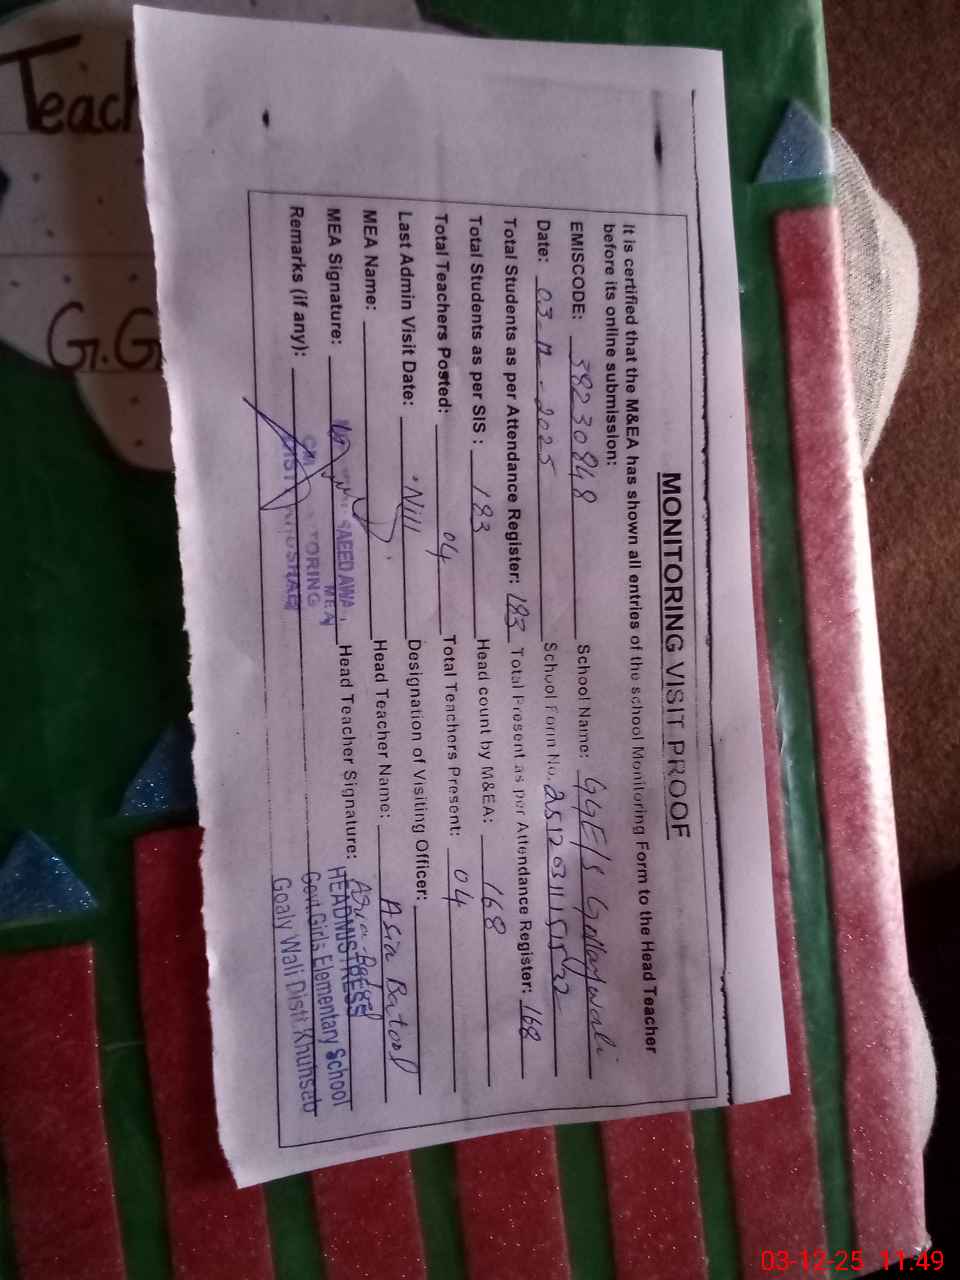 Teach
G.G
MONITORING VISIT PROOF
It is certified that the M&EA has shown all entries of the school Monitoring Form to the Head Teacher
before its online submission:
EMISCODE: 38230848 School Name: GGE/S
Date: 03-12-2025 School Form No.
Total Students as per Attendance Register: 183 Total Present as per Attendance Register: 168
Total Students as per SIS : 183 Head count by M&EA: 168
Total Teachers Posted: 04 Total Teachers Present: 04
Last Admin Visit Date: Nill Designation of Visiting Officer:
MEA Name: Head Teacher Name: Asia Batool
MEA Signature: SAEED AWA Head Teacher Signature:
MEA
HEADMISTRESS
Remarks (if any): TORING Govt.Girls Elementary School
Goaly Wali Distt. Khuhsab
03-12-25 11:49